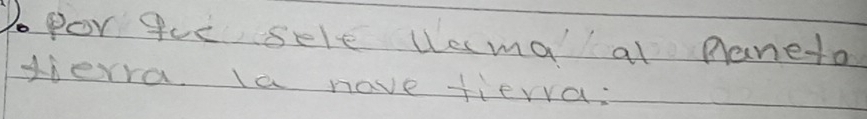 D. por que sele llama al planeta
tierra la nave tierra: